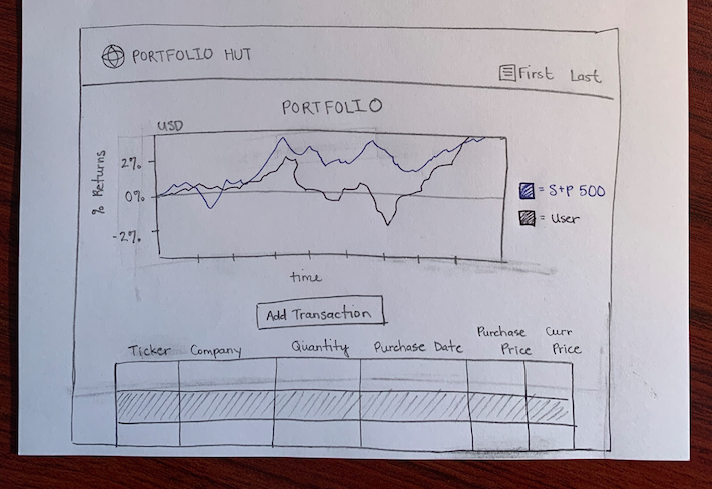 PORTFOLIO HUT
First Last
PORTFOLIO
USD
% Returns
2%
0%
-2%
time
= S+P 500
= User
Add Transaction
Ticker Company Quantity Purchase Date Purchase Price Curr Price